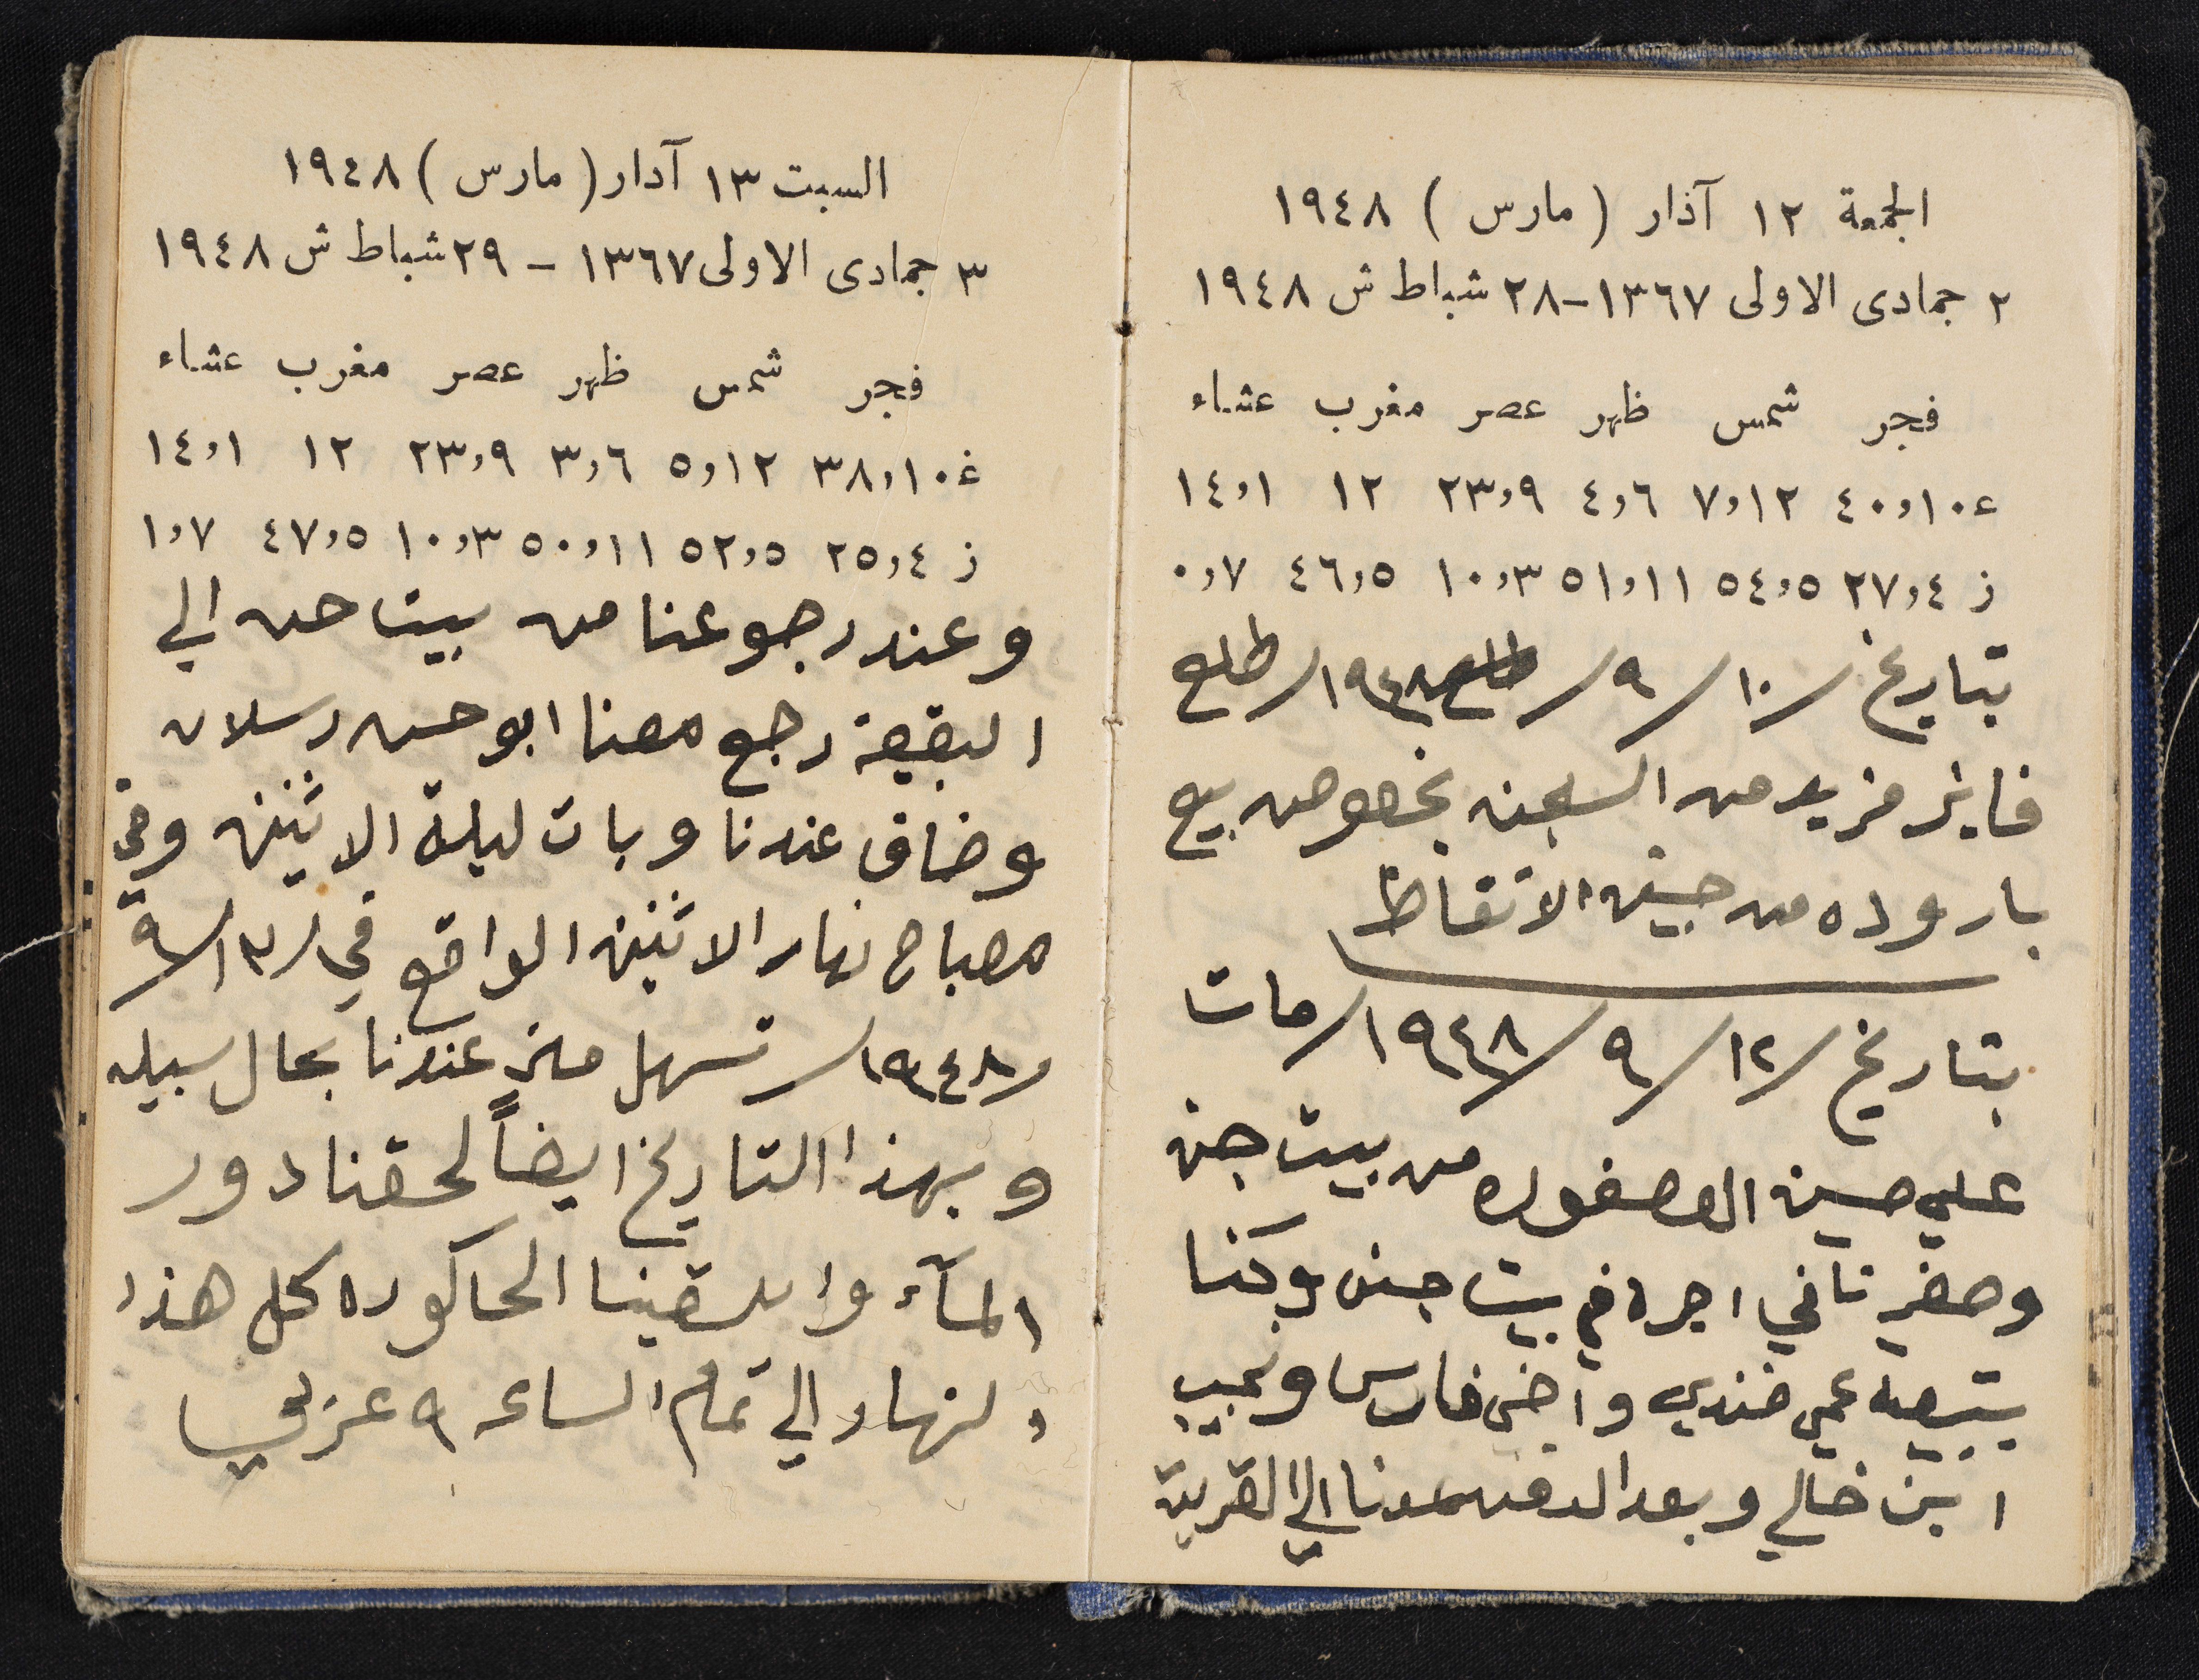 الجمعة ١٢ آذار ( مارس ) ١٩٤٨
٢ جمادى الاولى ١٣٦٧ - ٢٨ شباط ش ١٩٤٨
فجر شمس ظهر عصر مغرب عشاء
ع ٤٠،١٠ ٧،١٢ ٤،٦ ٢٣،٩ ١٢ ١٤،١
ز ٢٧،٤ ٥٤،٥ ٥١،١١ ١٠،٣ ٤٦،٥ ٠،٧
بتاريخ /١٠/ ٩/ ١٩٤٨/ طلع
فايز مزيد من السجن بخصوص بيع
باروده من جيش الانقاظ
بتاريخ /١٢/ ٩/ ١٩٤٨/ مات
علي حسين العصفوره من بيت جن
وصفر تاني اجره في بيت جن وكنا
بتبعيه عمي فندي واخي فارس ونجيب
ابن خالي وبعد الدفن عدنا الي القرية
السبت ١٣ آدار ( مارس ) ١٩٤٨
٣ جمادى الاولى ١٣٦٧ - ٢٩ شباط ش ١٩٤٨
فجر شمس ظهر عصر مغرب عشاء
غ ٣٨،١٠ ٥،١٢ ٣،٦ ٢٣،٩ ١٢ ١٤،١
ز ٢٥،٤ ٥٢،٥ ٥٠،١١ ١٠،٣ ٤٧،٥ ١،٧
وعند رجوعنا من بيت جن الي
البقيعة رجع معنا ابو حسن رسلان
وضاف عندنا وبات ليلة الاثنين وفي
صباح نهار الاثنين الواقع في /١٣/ ٩
/١٩٤٨/ تسهل من عندنا بحال سبيله
وبهذا التاريخ ايضاً لحقنا دور
المآء و سقينا الحاكوره كل هذا
النهار الي تمام الساعه ٩ عربي